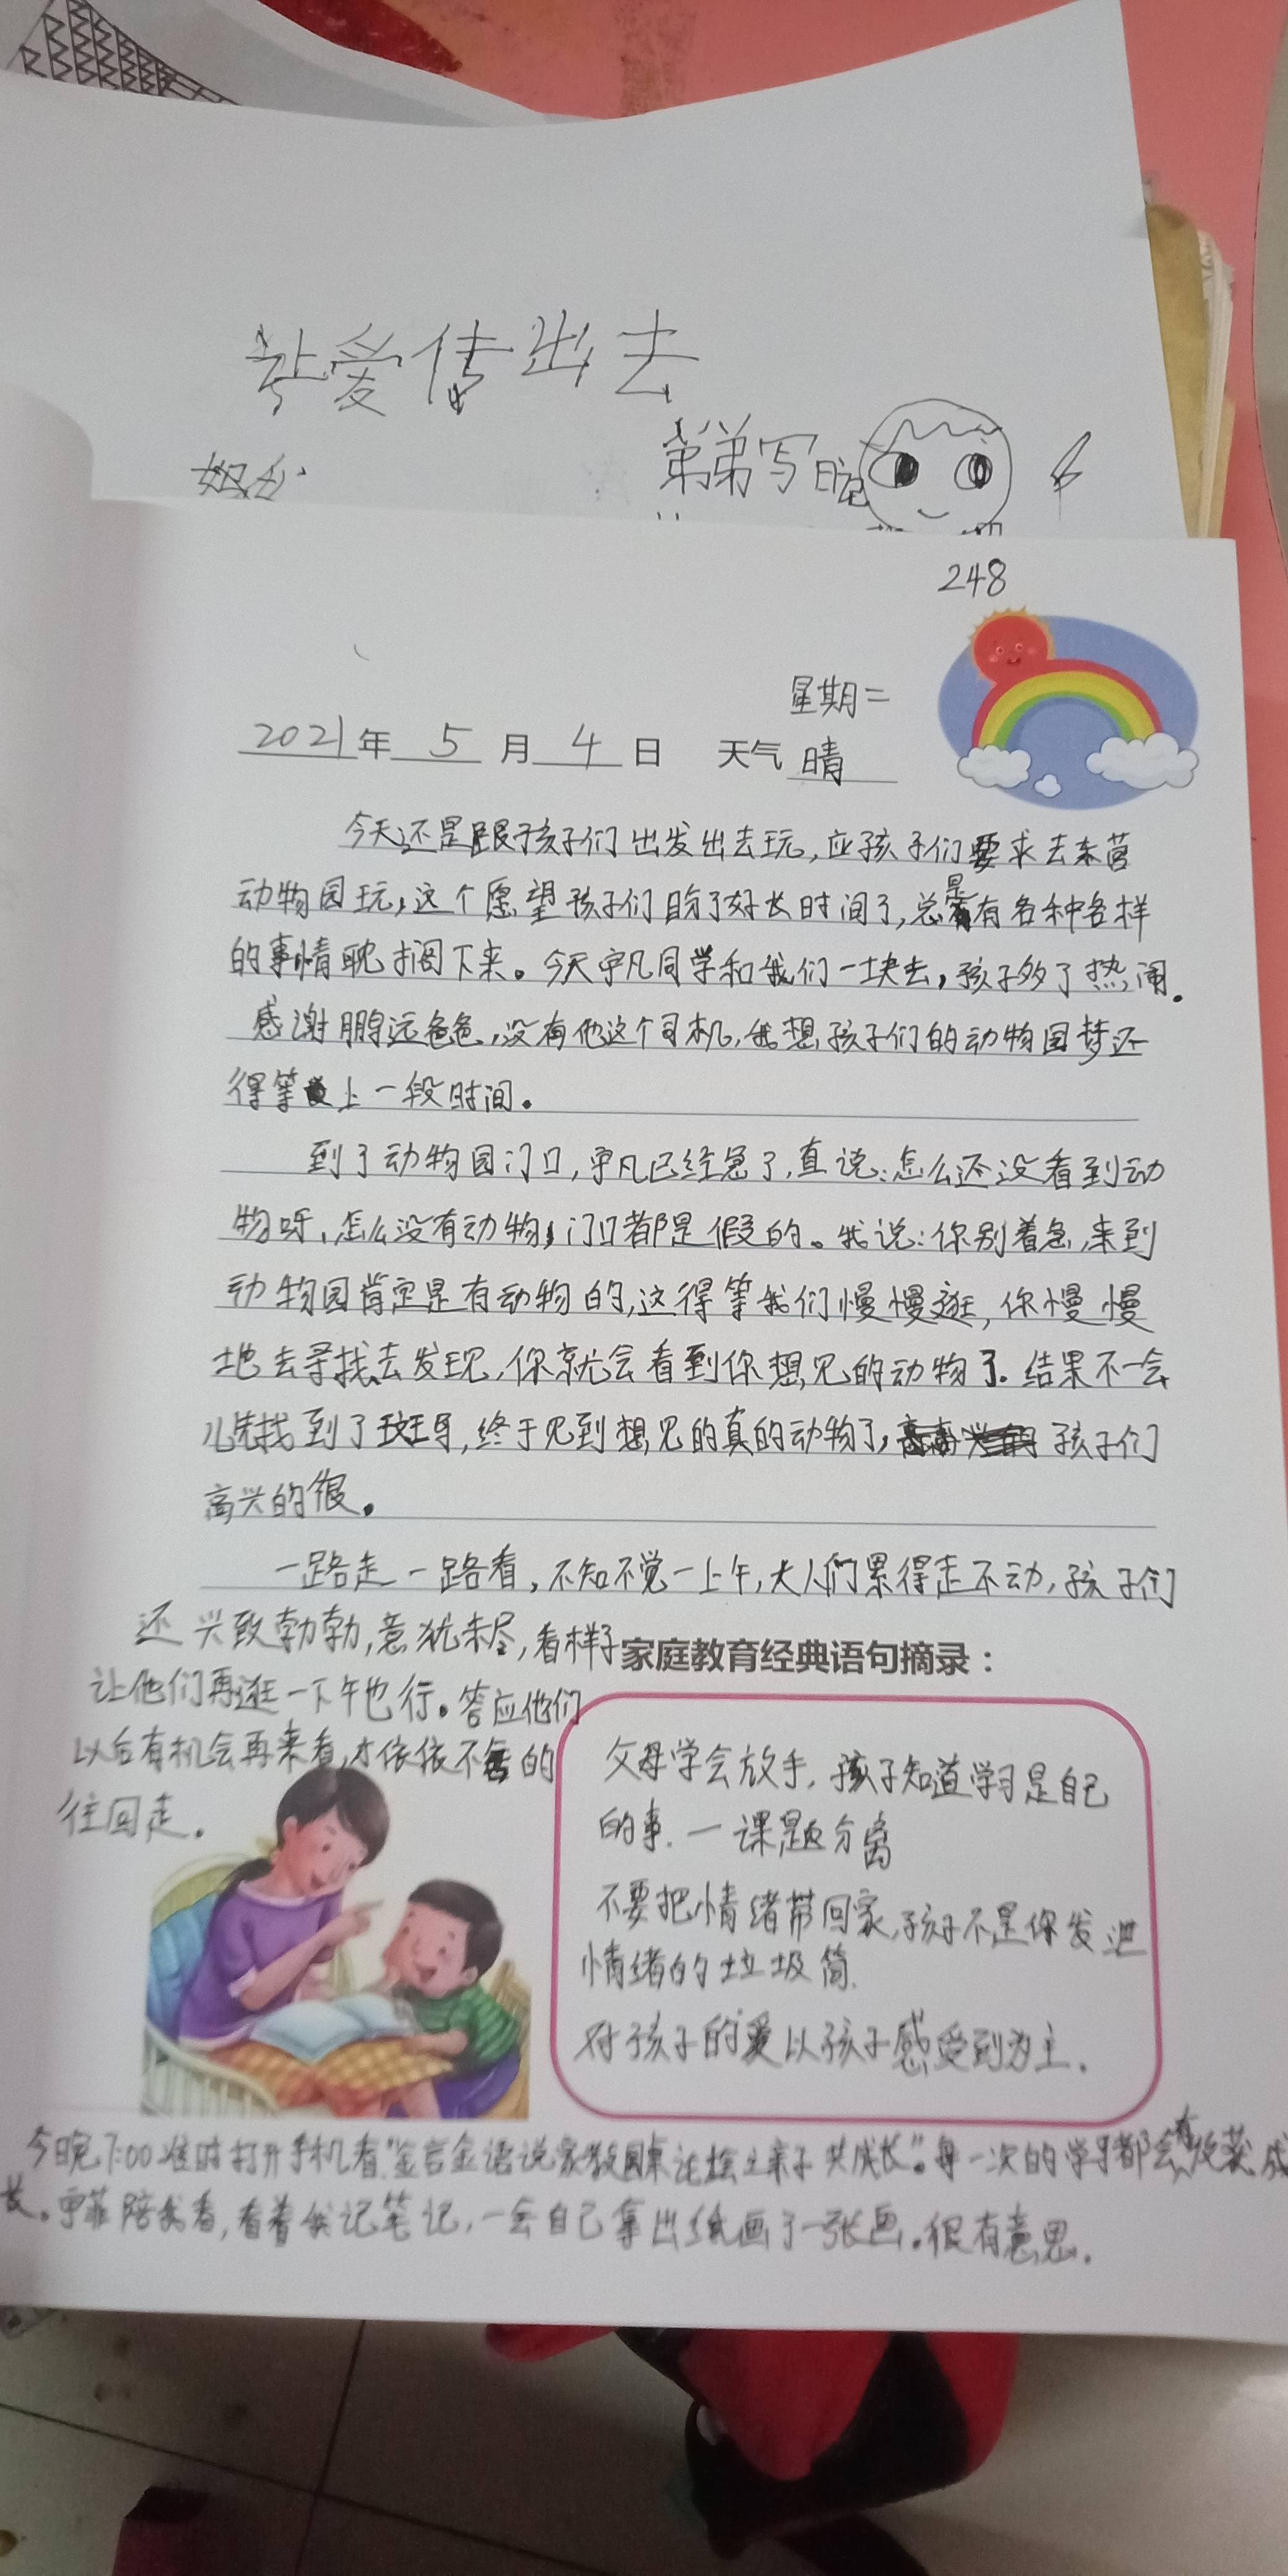 让爱传出去
弟弟写
248
星期二
2021年 5 月 4 日 天气 晴
今天还是跟孩子们出发出去玩,应孩子们要求去东营
动物园玩,这个愿望孩子们盼了好长时间了,总是有各种各样
的事情耽搁下来。今天宇凡同学和我们一块去,孩子多了热闹.
感谢鹏远爸爸,没有他这个司机,我想孩子们的动物园梦还
得等上一段时间。
到了动物园门口,宇凡已经急了,直说:怎么还没看到动
物呀、怎么没有动物,门口都是假的。我说:你别着急,来到
动物园肯定是有动物的,这得等我们慢慢逛,你慢慢
地去寻找去发现,你就会看到你想见的动物了.结果不一会
儿先找到了斑马,终于见到想见的真的动物了,孩子们
高兴的很。
一路走一路看,不知不觉一上午,大人们累得走不动,孩子们
还兴致勃勃,意犹未尽,看样子
让他们再逛一下午也行。答应他们
以后有机会再来看,才依依不舍的
往回走。
家庭教育经典语句摘录:
父母学会放手,孩子知道学习是自己
的事.一课题分离
不要把情绪带回家,孩子不是你发泄
情绪的垃圾筒.
对孩子的爱以孩子感受到为主.
今晚7:00准时打开手机看"金言金语说家教圆桌论坛之亲子共成长"。每一次的学习都会有收获成
长。宇菲陪我看,看着我记笔记,一会自己拿出纸画了一张画。很有意思.